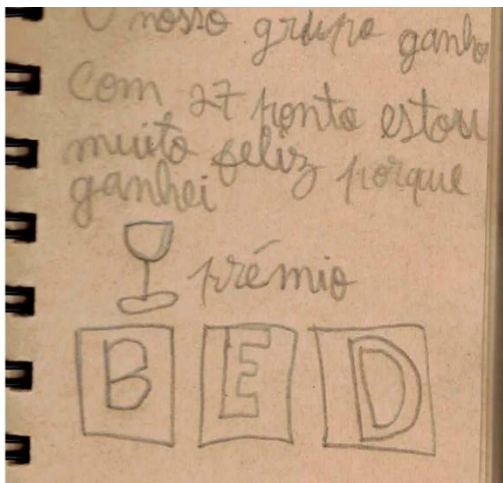 O nosso grupo ganho
Com 27 ponto estou
muito feliz porque
ganhei
prémio
BED